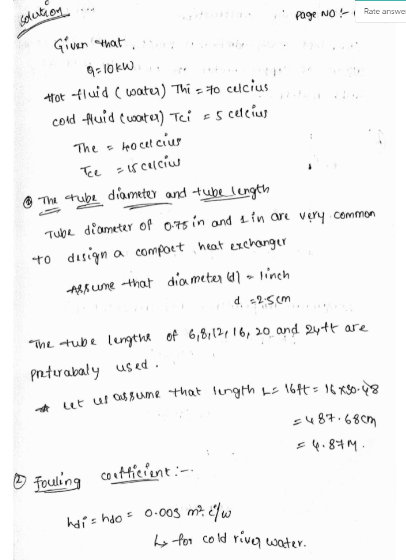 Solution
Page NO :-
Rate answer
Given that,
q = 10 kW
Hot fluid (water) Thi = 70 celcius
cold fluid (water) Tci = 5 celcius
The = 40 celcius
Tce = 15 celcius
The tube diameter and tube length
Tube diameter of 0.75 in and 1 in are very common
to design a compact heat exchanger
Assume that diameter (d) = 1 inch
d = 2.5 cm
The tube lengths of 6,8,12,16, 20 and 24 ft are
preferabaly used.
* Let us assume that length L = 16ft = 16 x 30.48
= 487.68 cm
= 4.87 M.
② Fouling coefficient :-
hdi = hdo = 0.003 m². c/w
↳ for cold river water.